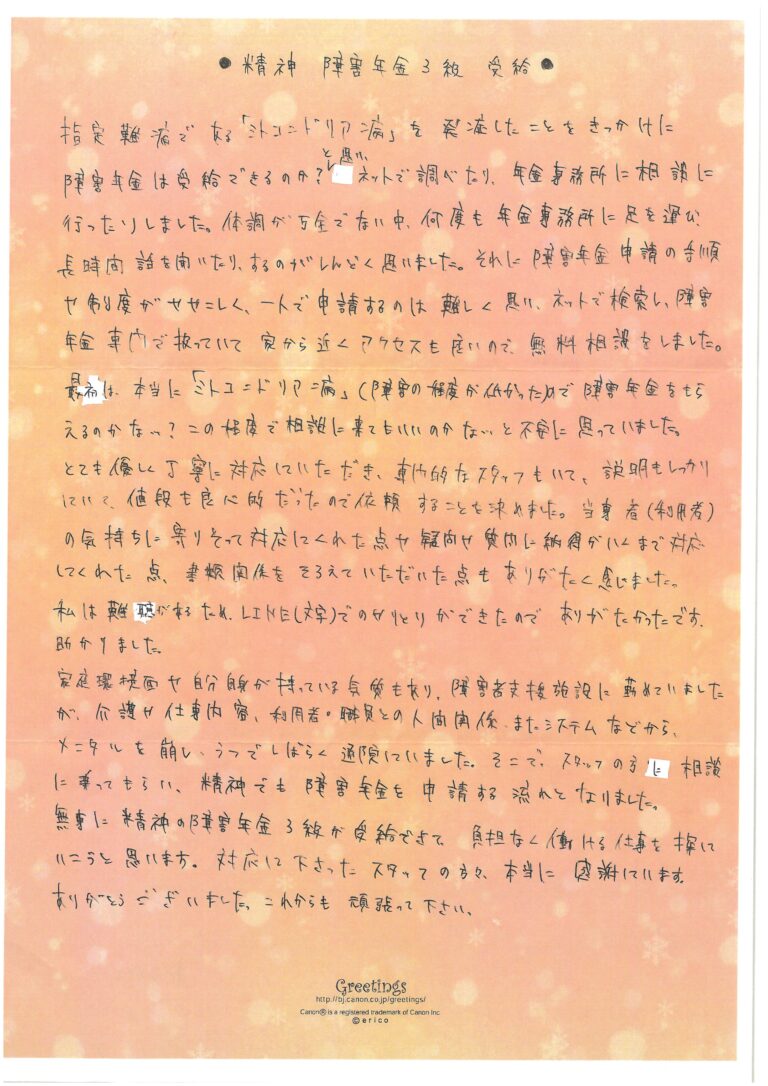 ●精神 障害年金3級 受給●
指定難病である「ミトコンドリア病」を発症したことをきっかけに
障害年金は受給できるのか?と思い、ネットで調べたり、年金事務所に相談に
行ったりしました。体調が万全でない中、何度も年金事務所に足を運び、
長時間話を聞いたり、するのがしんどく思いました。それに障害年金申請の手順
や制度がややこしく、一人で申請するのは難しく思い、ネットで検索し、障害
年金専門で扱っていて家から近くアクセスも良いので、無料相談をしました。
最初は、本当に「ミトコンドリア病」(障害の程度が低かった)ので障害年金をもら
えるのかな…?この程度で相談に来てもいいのかな…と不安に思っていました。
とても優しく丁寧に対応していただき、専門的なスタッフもいて、説明もしっかり
していて、値段も良心的だったので依頼することを決めました。当事者(利用者)
の気持ちに寄りそって対応してくれた点や疑問や質問に納得がいくまで対応
してくれた点、書類関係をそろえていただいた点もありがたく感じました。
私は難聴があるため、LINE(文字)でのやりとりができたのでありがたかったです、
助かりました。
家庭環境面や自分自身が持っている気質もあり、障害者支援施設に勤めていました
が、介護や仕事内容、利用者・職員との人間関係、またシステムなどから、
メンタルを崩し、うつでしばらく通院していました。そこで、スタッフの方に相談
に乗ってもらい、精神でも障害年金を申請する流れとなりました。
無事に精神の障害年金3級が受給できて、負担なく働ける仕事を探して
いこうと思います。対応して下さったスタッフの方々、本当に感謝しています。
ありがとうございました。これからも頑張って下さい。
Greetings
http://bj.canon.co.jp/greetings/
Canon® is a registered trademark of Canon Inc.
©erico